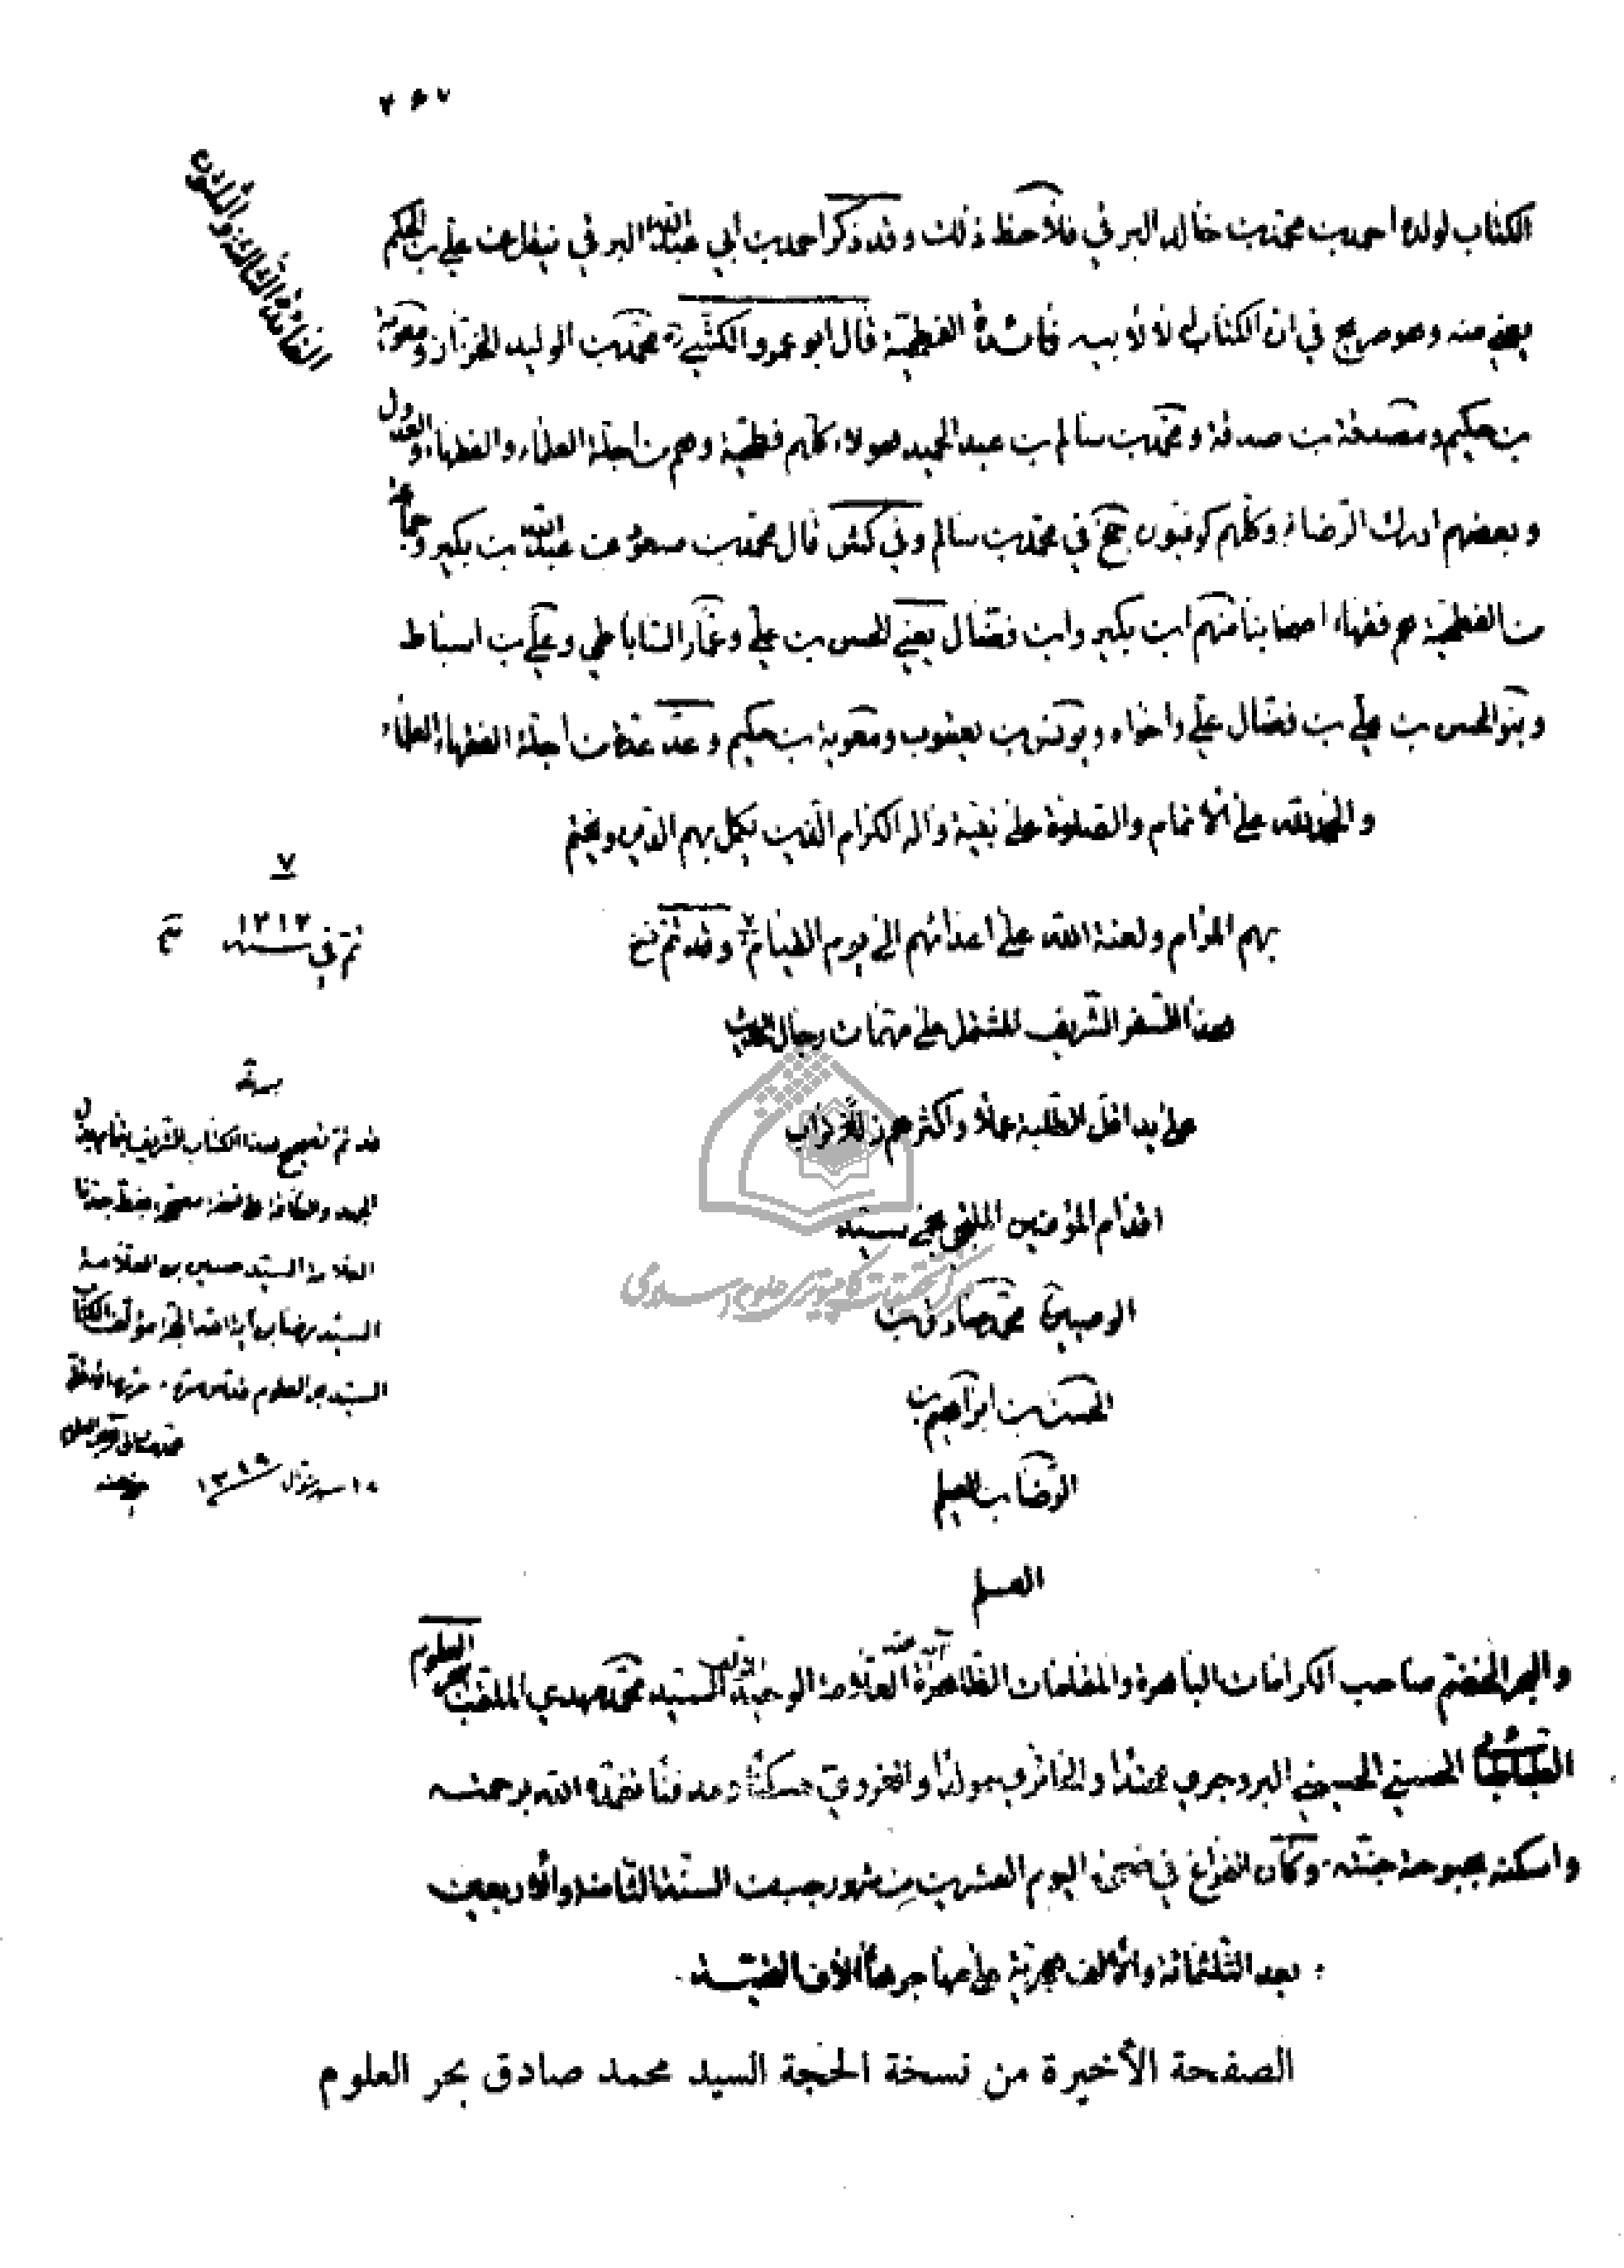 ٢٥٧
الفائدة الثالثة والثلثون
الكتاب لولده احمد بن محمد بن خالد البرقي فلاحظ ذلك وقد ذكر احمد بن ابي عبدالله البرقي فيقل عن علي بن الحكم
يعني منه وهو صريح في ان الكتاب له لا لابيه فائدة الفطحية قال ابو عمرو الكشي ره محمد بن الوليد الخزاز ومعوية
بن حكيم ومصدقة بن صدقة ومحمد بن سالم بن عبد الحميد هولاء كلهم فطحية وهم من اجلة العلماء والفقهاء والعدول
وبعضهم ادرك الرضا ع وكلهم كوفيون جخ في محمد بن سالم وفي كش قال محمد بن مسعود عن عبدالله بن بكير وجماعة
من الفطحية هم فقهاء اصحابنا منهم ابن بكير وابن فضال يعني الحسن بن علي وعمار الساباطي وعلي بن اسباط
وبنو الحسن بن علي بن فضال علي واخواه ويونس بن يعقوب ومعوية بن حكيم وعد عدة من اجلة الفقهاء العلماء
والحمد لله على الاتمام والصلوة على نبيه واله الكرام الذين يكمل بهم الدين ويختم
بهم المرام ولعنة الله على اعدائهم الى يوم القيام وقد تم نسخ
هذا السفر الشريف المشتمل على مهمات رجال الحديث
على يد اقل الطلبة عملا واكثرهم زللا تراب
اقدام المؤمنين الملتجي بسيد
الوصيين محمد صادق بن
الحسن بن ابراهيم بن
الرضا بن العلم
العلم
والبحر الخضم صاحب الكرامات الباهرة والمقامات الظاهرة آية الله العلامة الوحيد السيد محمد مهدي الملقب بحر العلوم
الطباطبائي الحسني الحسيني البروجردي محتدا والحائري مولدا والغروي مسكنا ومدفنا تغمده الله برحمته
واسكنه بحبوحة جنته وكان الفراغ في ضحى اليوم العشرين من شهر رجب من السنة الثامنة والاربعين
بعد الثلثمائة والالف هجرية على مهاجرها الاف التحية
٧
تم في سنه ١٣١٣
قد تم تصحيح هذا الكتاب الشريف بتمامه
الجهد والطاقة على نسخة مصححة بخط جدنا
العلامة السيد حسين بن العلامة
السيد رضا بن آية الله الحجة مؤلف الكتاب
السيد بحر العلوم قدس سره
محمد صادق بحر العلوم
١٨ شوال ١٣٤٩
مركز تحقيقات كامپيوتري علوم اسلامي
الصفحة الأخيرة من نسخة الحجة السيد محمد صادق بحر العلوم